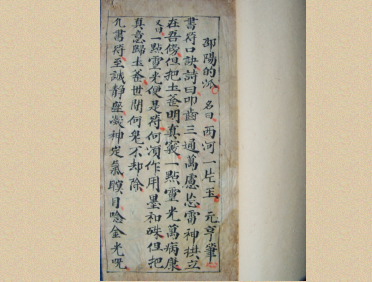 邵陽的派 名曰西河一片玉 元亨筆
書符口訣詩曰叩齒三通萬慮忘雷神拱立
在吾傍但把玉釜明真竅一點靈光萬病康
又曰一點靈光便是符何須作用墨和硃但把
真意歸玉釜世間何鬼不却除
凡書符至誠靜坐凝神定氣瞑目唸金光咒